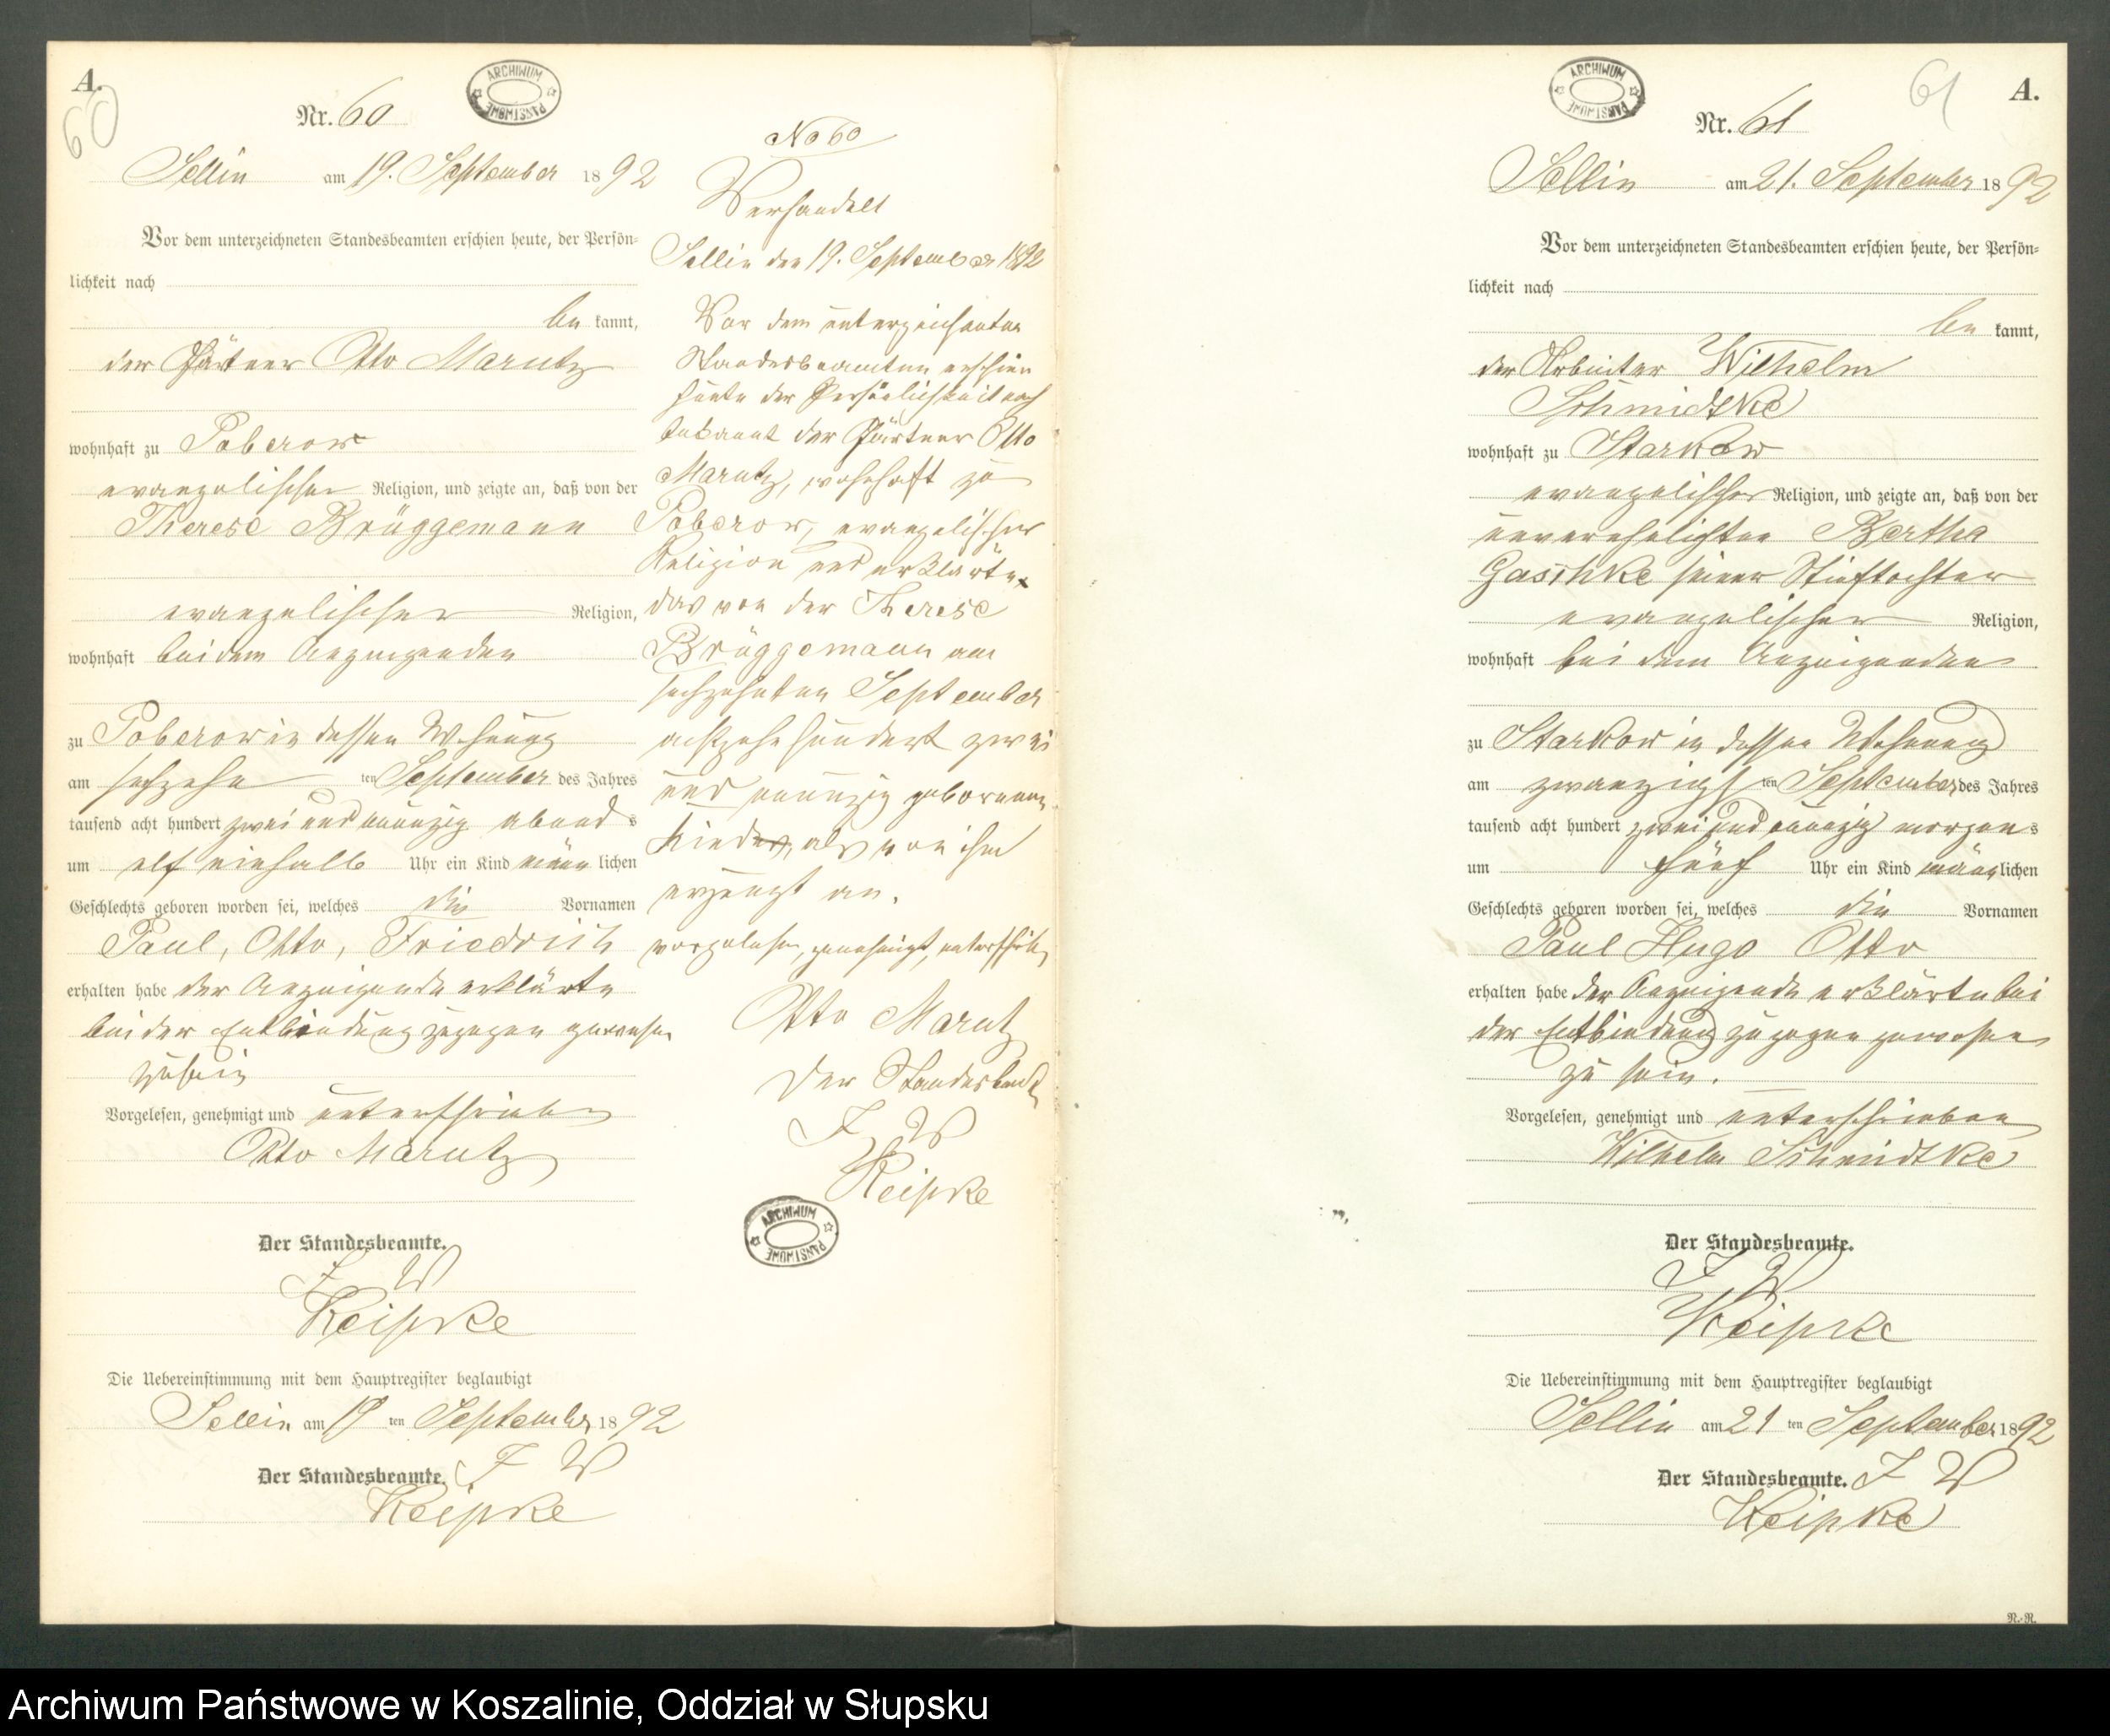 A.
60
Nr. 60
ARCHIWUM PAŃSTWOWE
Sellin am 19. September 1892
Vor dem unterzeichneten Standesbeamten erschien heute, der Persön-
lichkeit nach
be kannt,
der Gärtner Otto Marutz
wohnhaft zu Poberow
evangelischer Religion, und zeigte an, daß von der
Therese Brüggemann
evangelischer Religion,
wohnhaft bei dem Anzeigenden
zu Poberow in dessen Wohnung
am sechzehn ten September des Jahres
tausend acht hundert zwei und neunzig abends
um elf einhalb Uhr ein Kind männ lichen
Geschlechts geboren worden sei, welches die Vornamen
Paul, Otto, Friedrich
erhalten habe der Anzeigende erklärte
bei der Entbindung zugegen gewesen
zu sein
Vorgelesen, genehmigt und unterschrieben
Otto Marutz
Der Standesbeamte.
I W
Keipke
Die Uebereinstimmung mit dem Hauptregister beglaubigt
Sellin am 19 ten September 1892
Der Standesbeamte. I W
Keipke
No 60
Verhandelt
Sellin den 19. September 1892
Vor dem unterzeichneten
Standesbeamten erschien
heute der Persönlichkeit nach
bekannt der Gärtner Otto
Marutz, wohnhaft zu
Poberow, evangelischer
Religion und erklärte
das von der Therese
Brüggemann am
sechzehnten September
achtzehnhundert zwei
und neunzig geborenen
Kindes, als von ihm
erzeugt an.
vorgelesen, genehmigt, unterschrieben
Otto Marutz
Der Standesbeamte
I W
Keipke
ARCHIWUM PAŃSTWOWE
ARCHIWUM PAŃSTWOWE
61
A.
Nr. 61
Sellin am 21. September 1892
Vor dem unterzeichneten Standesbeamten erschien heute, der Persön-
lichkeit nach
be kannt,
der Arbeiter Wilhelm
Schmidtke
wohnhaft zu Starkow
evangelischer Religion, und zeigte an, daß von der
unverehelichten Bertha
Gaschke seiner Stieftochter
evangelischer Religion,
wohnhaft bei dem Anzeigenden
zu Starkow in dessen Wohnung
am zwanzigs ten September des Jahres
tausend acht hundert zwei und neunzig morgens
um fünf Uhr ein Kind männlichen
Geschlechts geboren worden sei, welches die Vornamen
Paul Hugo Otto
erhalten habe der Anzeigende erklärte bei
der Entbindung zugegen gewesen
zu sein.
Vorgelesen, genehmigt und unterschrieben
Wilhelm Schmidtke
Der Standesbeamte.
I W
Keipke
Die Uebereinstimmung mit dem Hauptregister beglaubigt
Sellin am 21 ten September 1892
Der Standesbeamte. I W
Keipke
R.-R.
Archiwum Państwowe w Koszalinie, Oddział w Słupsku